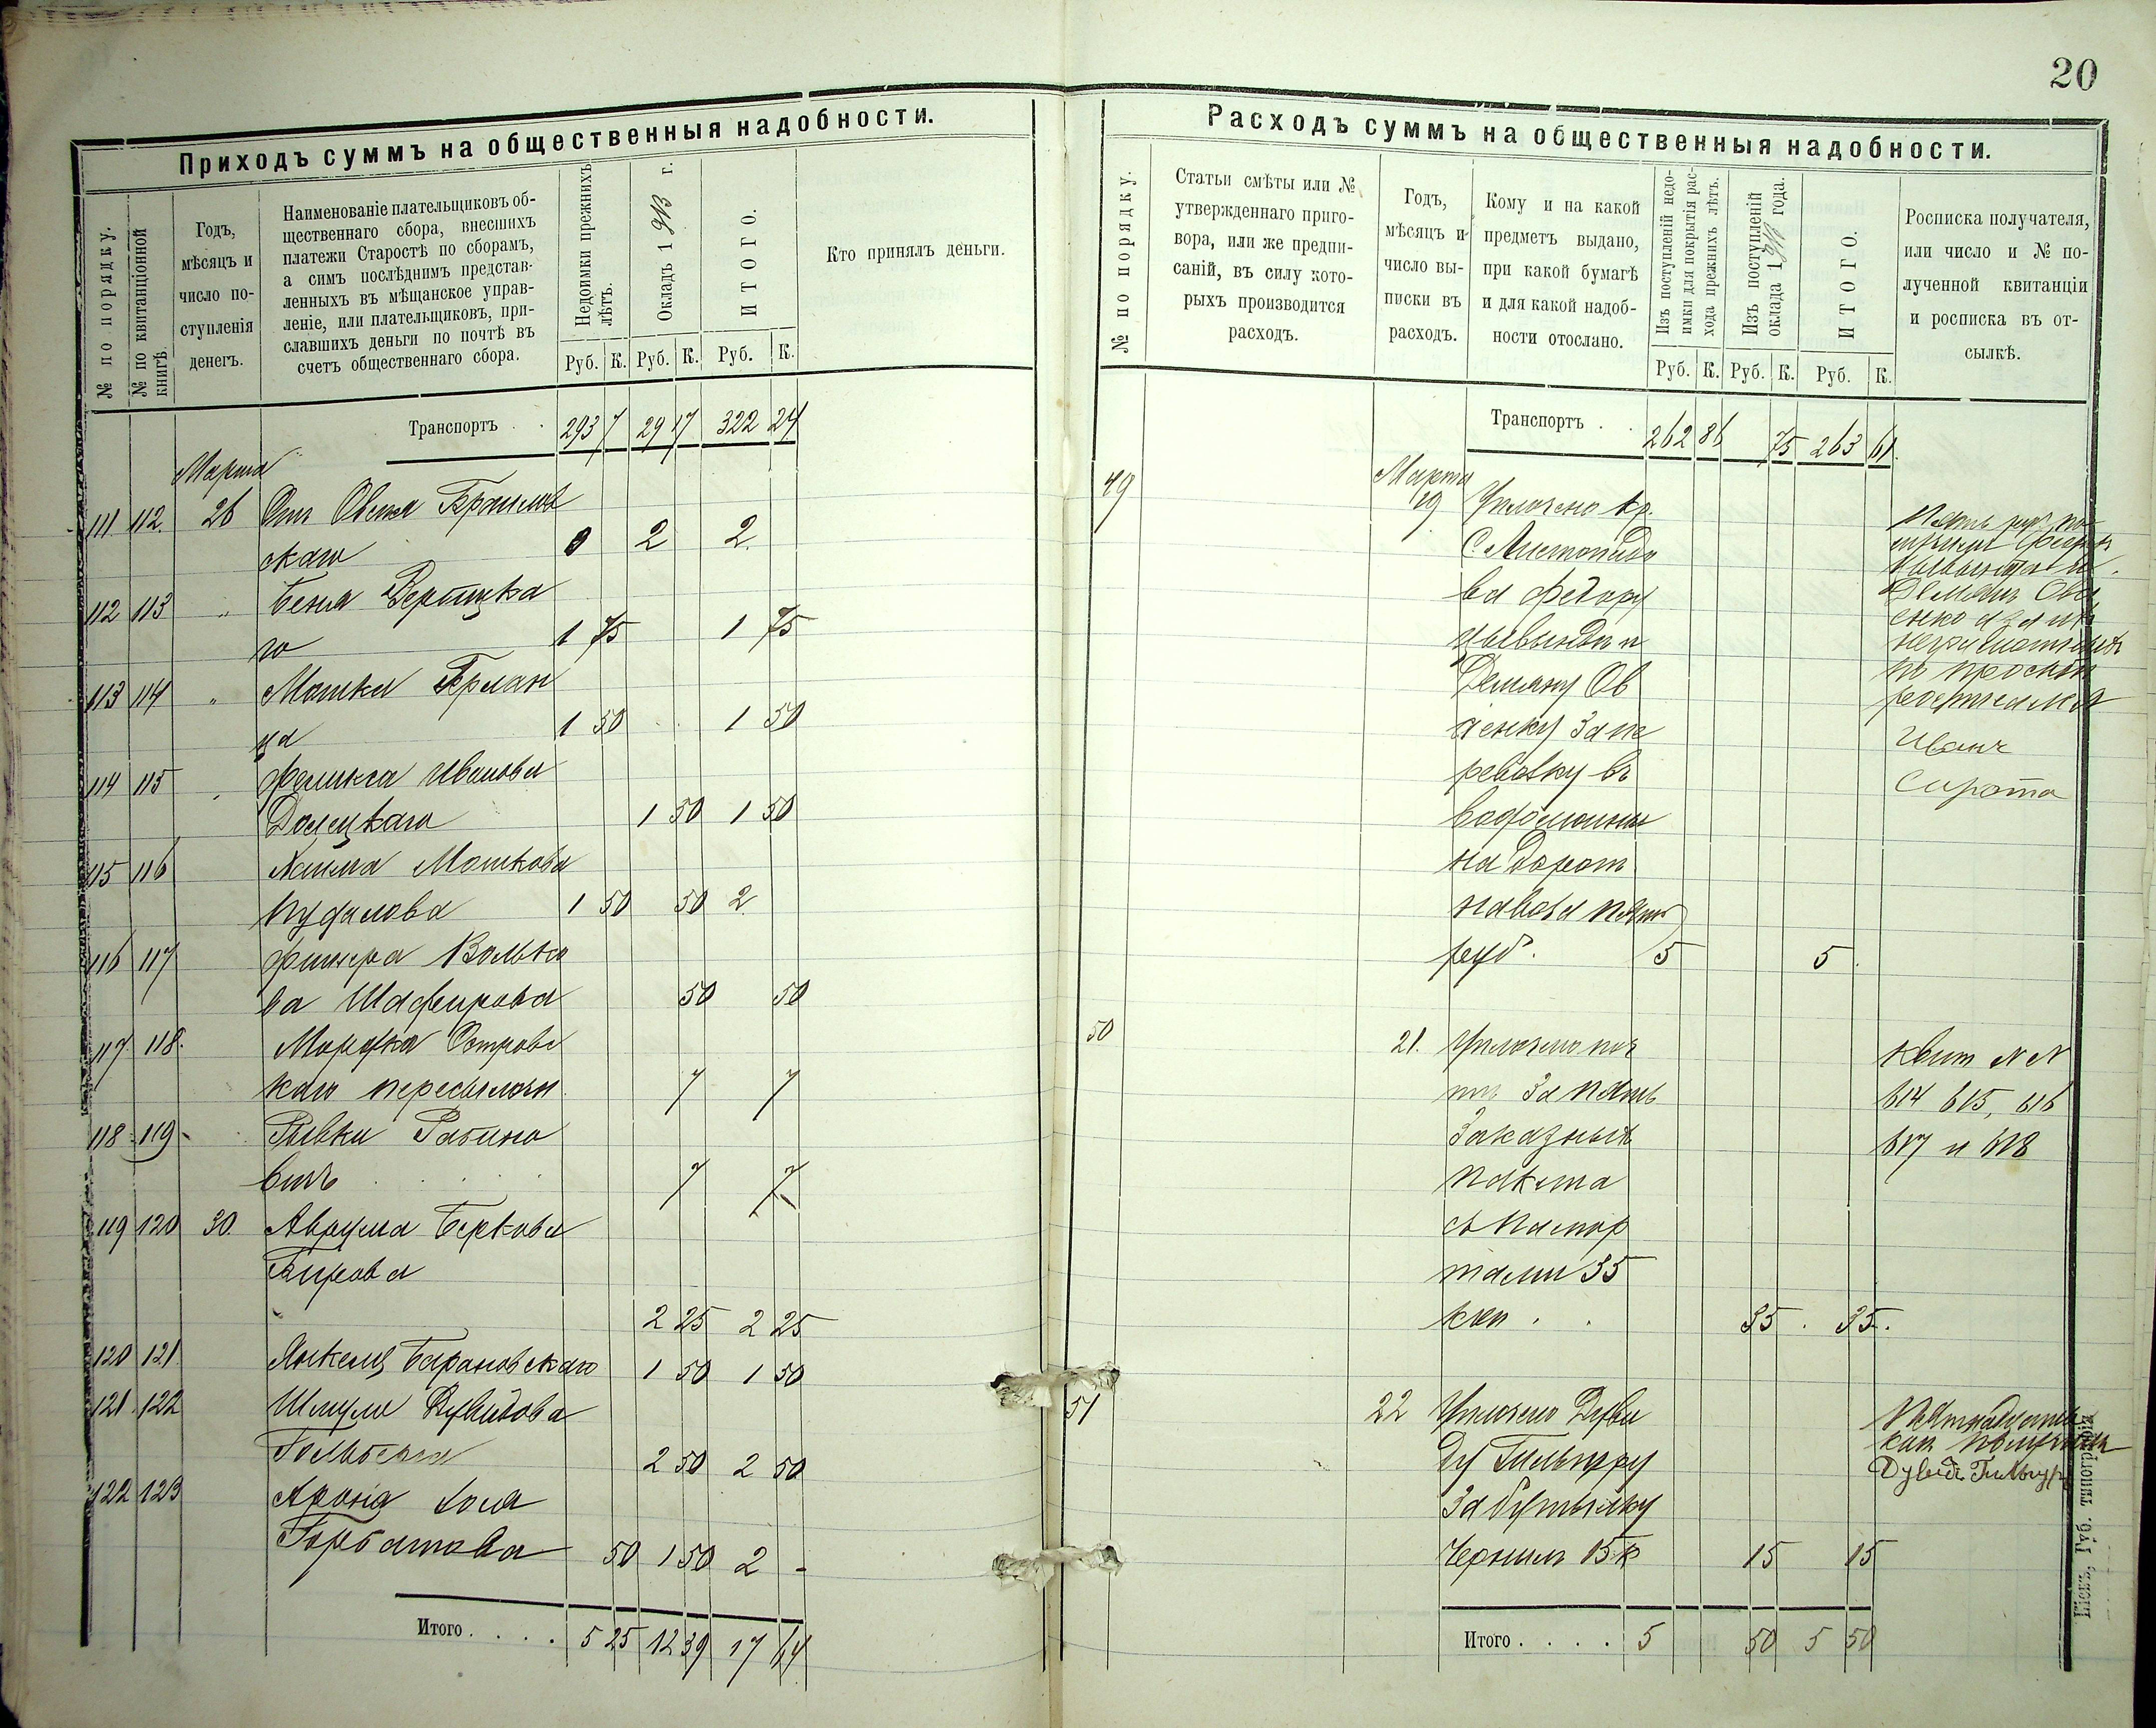 20
Приходъ суммъ на общественныя надобности.
№ по порядку.
№ по квитанціонной книгѣ.
Годъ,
мѣсяцъ и
число по-
ступленія
денегъ.
Наименованіе плательщиковъ об-
щественнаго сбора, внесшихъ
платежи Старостѣ по сборамъ,
а симъ послѣднимъ представ-
ленныхъ въ мѣщанское управ-
леніе, или плательщиковъ, при-
славшихъ деньги по почтѣ въ
счетъ общественнаго сбора.
Недоимки прежнихъ
лѣтъ.
Окладъ 1 г.
ИТОГО.
Кто принялъ деньги.
Руб. К. Руб. К. Руб. К.
Транспортъ . . 293 7 29 17 322 24
Марта
111 112 26 Отъ Овсея Браилов
скаго 2 2
112 113 " Беня
го 1 75 1 75
113 114 " Мошки
ца 1 50 1 50
114 115 Феликса Иванова
Долецкаго 1 50 1 50
115 116 Хаима Мошкова
1 50 50 2
116 117 Волько
ва Шафирова 50 50
117 118 Мордка Островс
каго пересылочн 7 7
118 119 Ривки Рабино
вичъ 7 7
119 120 30. Аврума Беркова
2 25 2 25
120 121 Янкеля Барановскаго 1 50 1 50
121 122 Шмуля Дувидова
2 50 2 50
122 123 Арона
Горбатова 50 1 50 2 -
Итого . . . . 5 25 12 39 17 64
Расходъ суммъ на общественныя надобности.
№ по порядку.
Статьи смѣты или №
утвержденнаго приго-
вора, или же предпи-
саній, въ силу кото-
рыхъ производится
расходъ.
Годъ,
мѣсяцъ и
число вы-
писки въ
расходъ.
Кому и на какой
предметъ выдано,
при какой бумагѣ
и для какой надоб-
ности отослано.
Изъ поступленій недо-
имки для покрытія рас-
хода прежнихъ лѣтъ.
Изъ поступленій
оклада 1 года.
ИТОГО.
Росписка получателя,
или число и № по-
лученной квитанціи
и росписка въ от-
сылкѣ.
Руб. К. Руб. К. Руб. К.
Транспортъ . . 262 86 75 263 61
49 Марта
19 Уплочено кр.
С Листопадо
ва Федору
Демяну Ов
сіенку За пе
ревозку въ
на
пять
руб. 5 5
Пять руб. по
Демянъ Овсі
енко а за ихъ
неграмотныхъ
по просьбѣ
росписался
Иванъ
Сирота
50 21. Уплочено поч
тѣ За пять
Заказныхъ
пакета
съ паспор
тами 35
коп . . 35 . 35.
Квит N N
614 615, 616
617 и 618
51 22 Уплочено Дуви
ду Гильгуру
За бутылку
Чернилъ 15 к 15 15
Пятнадцать
коп получилъ
Дувидъ Гильгуръ
Итого . . . . 5 50 5 50